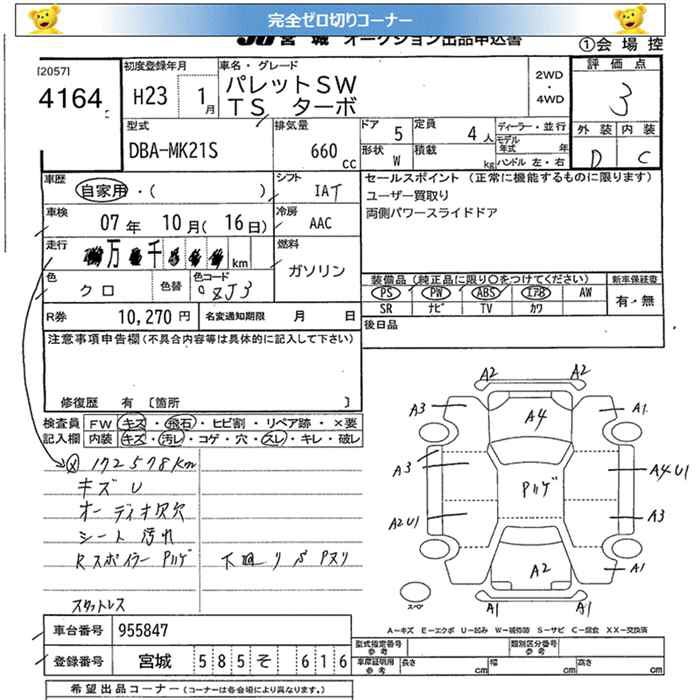 完全ゼロ切りコーナー
JU 宮城 オークション出品申込書
①会場控
[2057]
4164
初度登録年月
H23 1月
車名・グレード
パレットSW
TS ターボ
2WD・4WD
評価点
3
外装 内装
D C
型式
DBA-MK21S
排気量
660 cc
ドア 5
定員 4人
形状 W
積載 kg
ディーラー・並行
モデル年式 年
ハンドル 左・右
車歴
自家用・( )
シフト
IAT
車検
07年 10月(16日)
冷房
AAC
走行
万 千 km
燃料
ガソリン
色
クロ
色替
色コード
ZJ3
R券
10,270円
名変通知期限 月 日
セールスポイント (正常に機能するものに限ります)
ユーザー買取り
両側パワースライドドア
装備品 (純正品に限り○をつけてください)
新車保証書
PS PW ABS エアB AW
SR ナビ TV カワ
有・無
後日品
注意事項申告欄(不具合内容等は具体的に記入して下さい)
修復歴 有 [箇所 ]
検査員記入欄
FW キズ・飛石・ヒビ割・リペア跡・×要
内装 キズ・汚レ・コゲ・穴・スレ・キレ・破レ
ⓧ 172578km
キズU
オーディオ欠穴
シート汚れ
Rスポイラー Pハゲ
下廻りサビ Pヌリ
スタットレス
A2 A2
A3 A4 A1
A3 Pハゲ A4U1
A2U1 A3
A2 A1
スペア A1 A1
A―キズ E―エクボ U―凹み W―補修跡 S―サビ C―腐食 XX―交換済
車台番号
955847
登録番号
宮城 585 そ 616
型式指定番号 参考
類別区分番号 参考
車庫証明用 参考
長さ cm
幅 cm
高さ cm
希望出品コーナー (コーナーは各会場により異なります。)